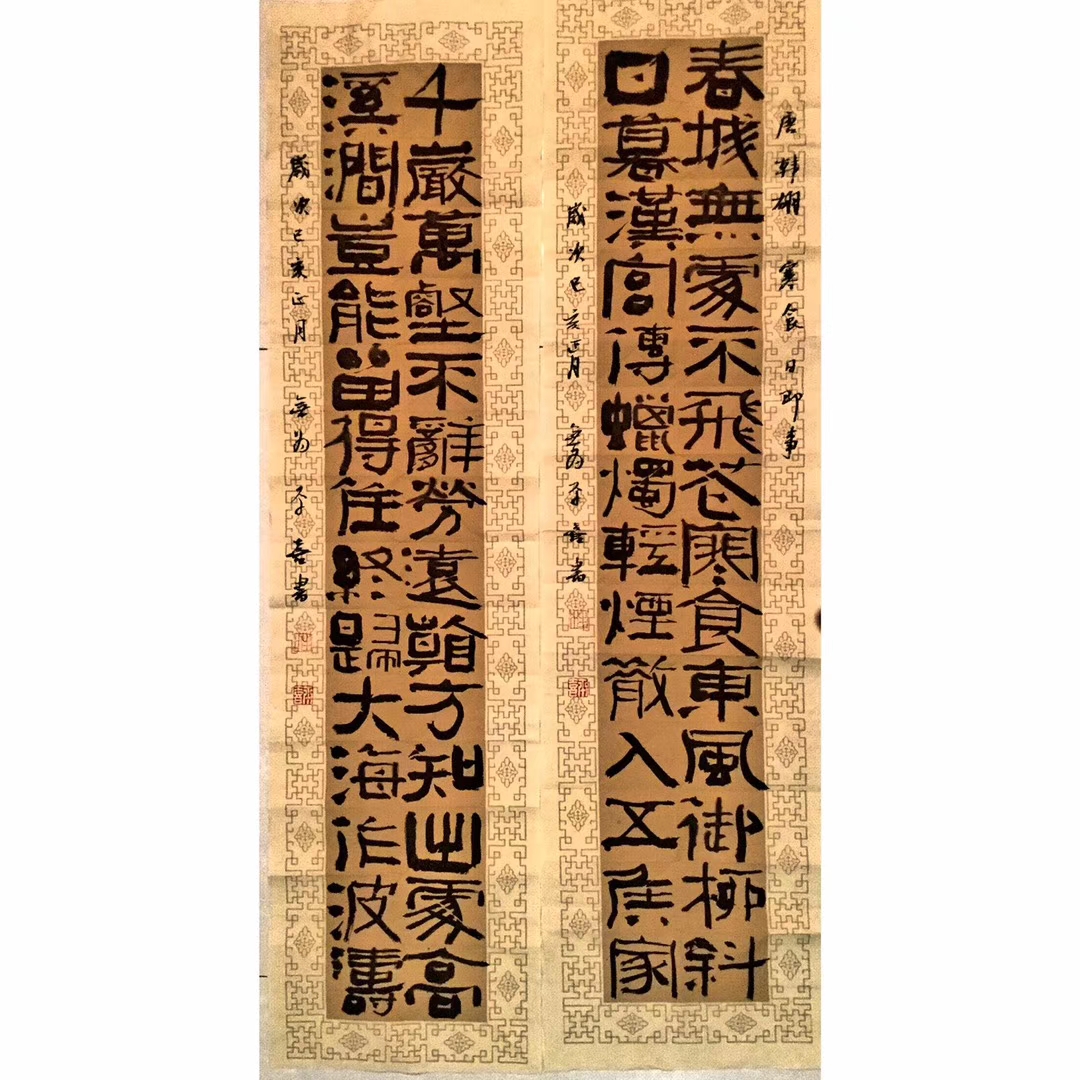 唐韓翃 寒食日即事
春城無處不飛花寒食東風御柳斜
日暮漢宮傳蠟燭輕煙散入五侯家
歲次己亥正月 無為 書
千巖萬壑不辭勞遠看方知出處高
溪澗豈能留得住終歸大海作波濤
歲次己亥正月 無為 書